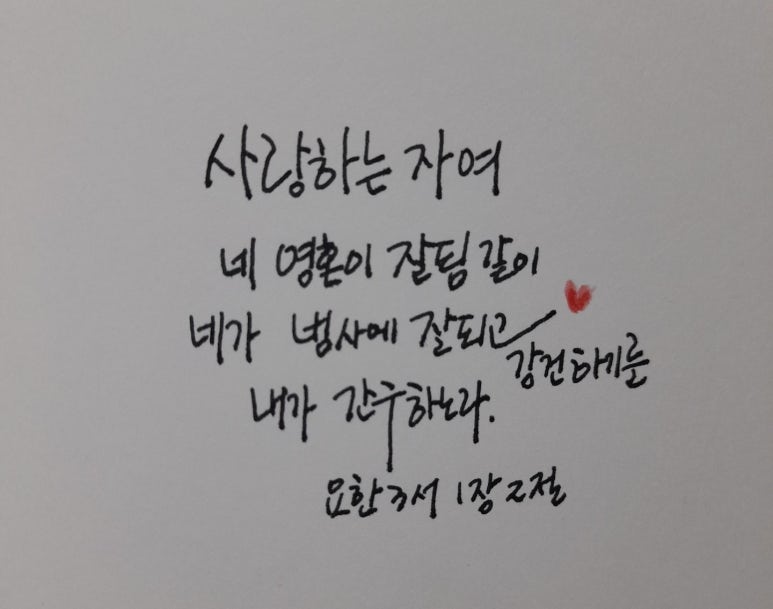 사랑하는 자여
네 영혼이 잘됨 같이
네가 범사에 잘되고
강건하기를
내가 간구하노라.
요한3서 1장 2절